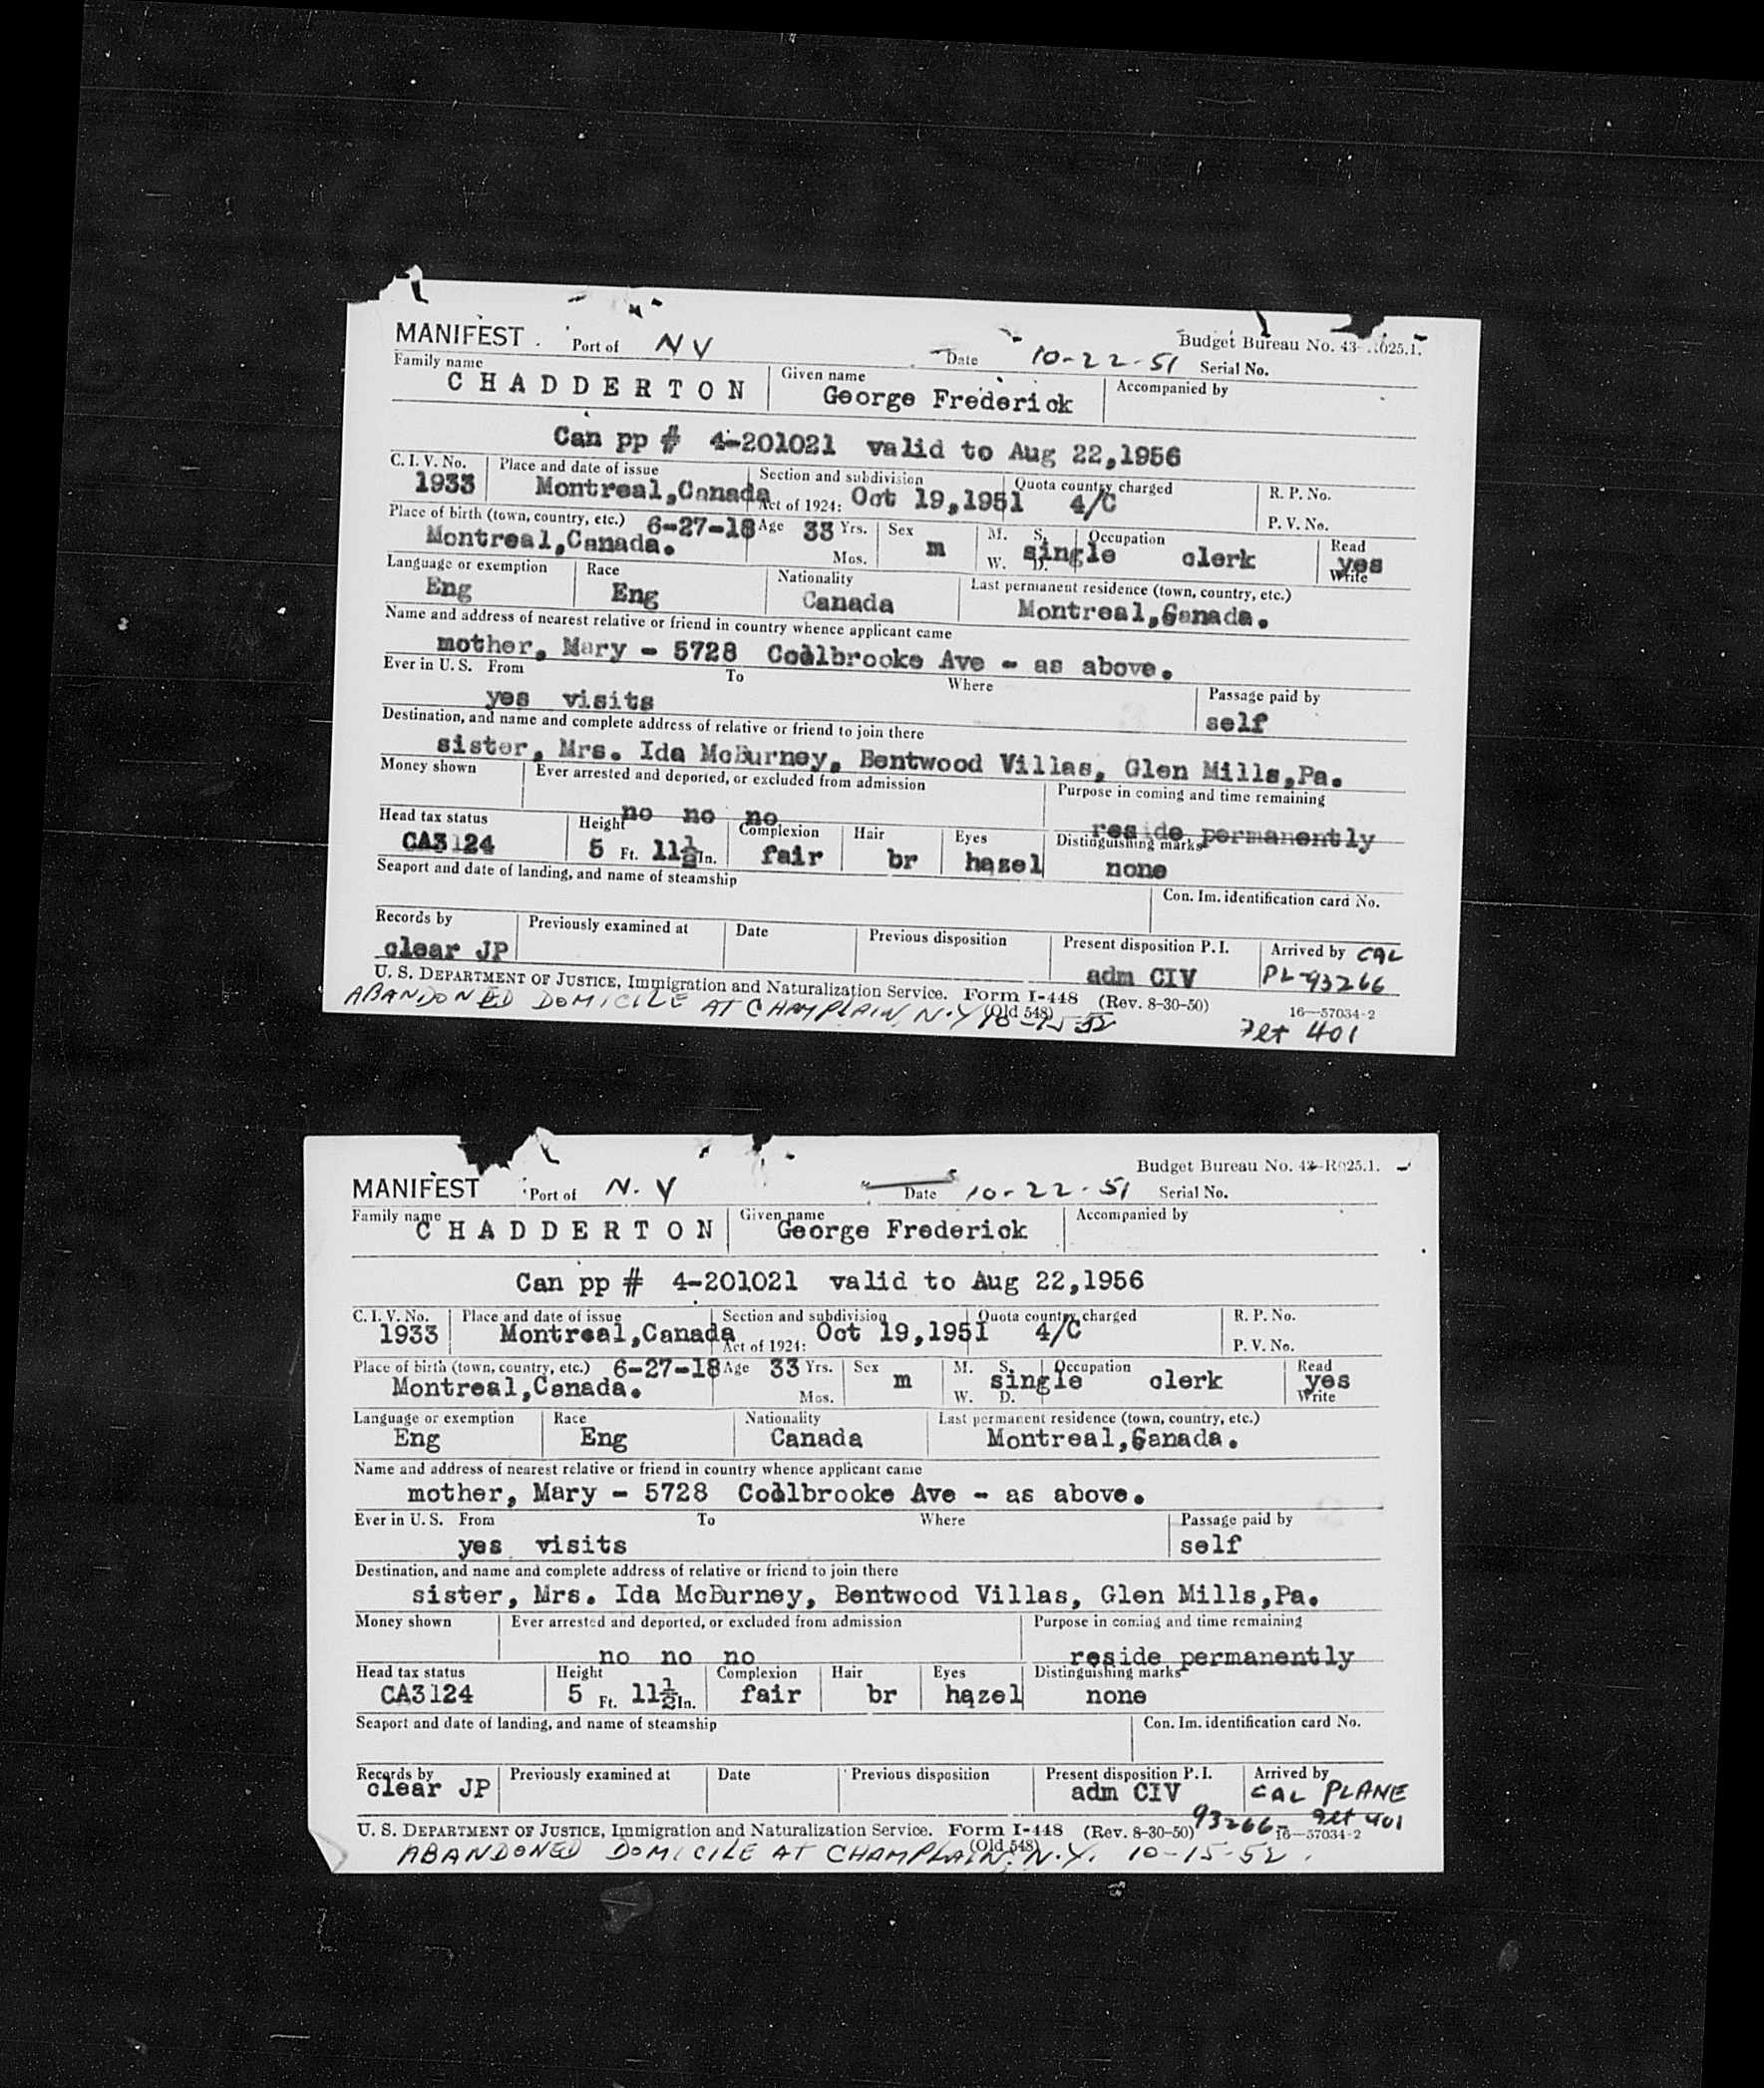 MANIFEST Port of N Y Date 10-22-51 Budget Bureau No. 43-R025.1.
Serial No.
Family name Given name Accompanied by
CHADDERTON George Frederick
Can pp # 4-201021 valid to Aug 22,1956
C. I. V. No. Place and date of issue Section and subdivision Quota country charged R. P. No.
1933 Montreal,Canada Act of 1924: Oct 19,1951 4/C
P. V. No.
Place of birth (town, country, etc.) 6-27-18 Age 33 Yrs. Sex M. S. Occupation Read
Montreal,Canada. Mos. m W. D. single clerk yes
Write
Language or exemption Race Nationality Last permanent residence (town, country, etc.)
Eng Eng Canada Montreal,Canada.
Name and address of nearest relative or friend in country whence applicant came
mother, Mary - 5728 Coolbrooke Ave - as above.
Ever in U. S. From To Where Passage paid by
yes visits self
Destination, and name and complete address of relative or friend to join there
sister, Mrs. Ida McBurney, Bentwood Villas, Glen Mills,Pa.
Money shown Ever arrested and deported, or excluded from admission Purpose in coming and time remaining
no no no reside permanently
Head tax status Height Complexion Hair Eyes Distinguishing marks
CA3124 5 Ft. 11½ In. fair br hazel none
Seaport and date of landing, and name of steamship Con. Im. identification card No.
Records by Previously examined at Date Previous disposition Present disposition P. I. Arrived by CAL
clear JP adm CIV PL-93266
U. S. DEPARTMENT OF JUSTICE, Immigration and Naturalization Service. Form I-448 (Rev. 8-30-50)
(Old 548) 16—57034-2
ABANDONED DOMICILE AT CHAMPLAIN, N.Y 10-15-52 Flt 401
MANIFEST Port of N. Y Date 10-22-51 Budget Bureau No. 43-R025.1.
Serial No.
Family name Given name Accompanied by
CHADDERTON George Frederick
Can pp # 4-201021 valid to Aug 22,1956
C. I. V. No. Place and date of issue Section and subdivision Quota country charged R. P. No.
1933 Montreal,Canada Act of 1924: Oct 19,1951 4/C
P. V. No.
Place of birth (town, country, etc.) 6-27-18 Age 33 Yrs. Sex M. S. Occupation Read
Montreal,Canada. Mos. m W. D. single clerk yes
Write
Language or exemption Race Nationality Last permanent residence (town, country, etc.)
Eng Eng Canada Montreal,Canada.
Name and address of nearest relative or friend in country whence applicant came
mother, Mary - 5728 Coolbrooke Ave - as above.
Ever in U. S. From To Where Passage paid by
yes visits self
Destination, and name and complete address of relative or friend to join there
sister, Mrs. Ida McBurney, Bentwood Villas, Glen Mills,Pa.
Money shown Ever arrested and deported, or excluded from admission Purpose in coming and time remaining
no no no reside permanently
Head tax status Height Complexion Hair Eyes Distinguishing marks
CA3124 5 Ft. 11½ In. fair br hazel none
Seaport and date of landing, and name of steamship Con. Im. identification card No.
Records by Previously examined at Date Previous disposition Present disposition P. I. Arrived by
clear JP adm CIV CAL PLANE
93266- Flt 401
U. S. DEPARTMENT OF JUSTICE, Immigration and Naturalization Service. Form I-448 (Rev. 8-30-50) 16—57034-2
(Old 548)
ABANDONED DOMICILE AT CHAMPLAIN, N.Y. 10-15-52.